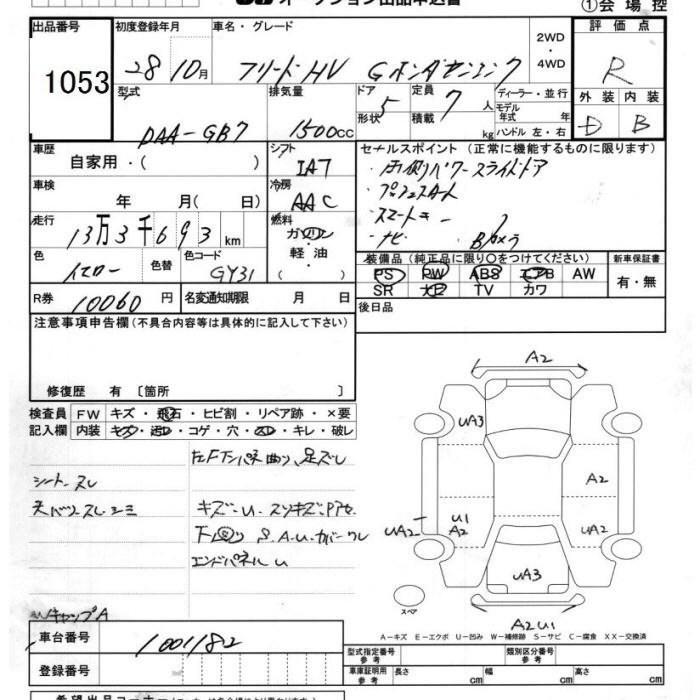 ①会場控
出品番号 初度登録年月 車名・グレード 2WD ・ 4WD 評価点
1053 28 10月 フリードHV Gホンダセンシング R
型式 排気量 ドア 形状 定員 積載 ディーラー・並行 モデル年式 年 外装 内装
DAA-GB7 1500cc 5 7人 kg ハンドル 左・右 D B
車歴 シフト セールスポイント(正常に機能するものに限ります)
自家用・( ) IA7 ・両側パワースライドドア
車検 冷房 ・プッシュスタート
年 月( 日) AAC ・スマートキー
走行 燃料 ・ナビ Bカメラ
13万3千693km ガソリン・軽油・( )
色 色替 色コード 装備品(純正品に限り○をつけてください) 新車保証書
イエロー GY31 PS PW ABS エアB AW 有・無
SR ナビ TV カワ
R券 10060円 名変通知期限 月 日 後日品
注意事項申告欄(不具合内容等は具体的に記入して下さい)
修復歴 有〔箇所 〕
検査員 FW キズ・飛石・ヒビ割・リペア跡・×要
記入欄 内装 キズ・汚レ・コゲ・穴・スレ・キレ・破レ
左Fインパネ曲り、足ズレ
シートスレ
天バリスレシミ キズ・U・スリキズP大セ
下回り S.A.U.カバーワレ
エンドパネルU
Wキャップ A
A2
UA3
A2
U1
UA2 A2 UA2
UA3
スペア
A2U1
A-キズ E-エクボ U-凹み W-補修跡 S-サビ C-腐食 XX-交換済
車台番号 1001182
登録番号
型式指定番号 参考 類別区分番号 参考
車庫証明用 参考 長さ cm 幅 cm 高さ cm